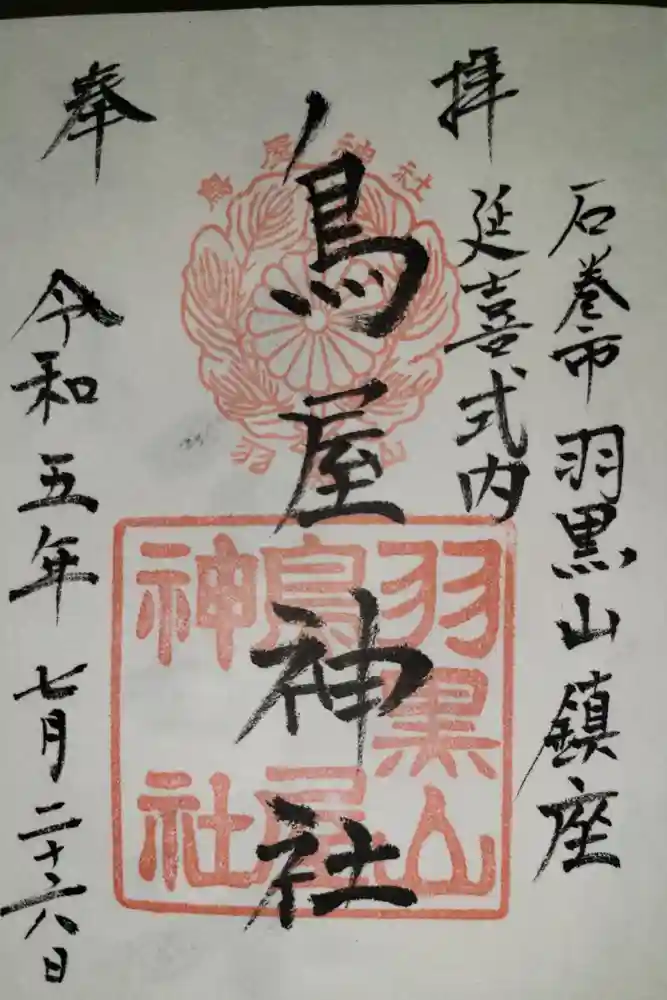 石巻市羽黒山鎮座
拝
延喜式内
鳥屋神社
奉
令和五年七月二十六日
鳥屋神社
羽 山
羽黒山
鳥屋
神社